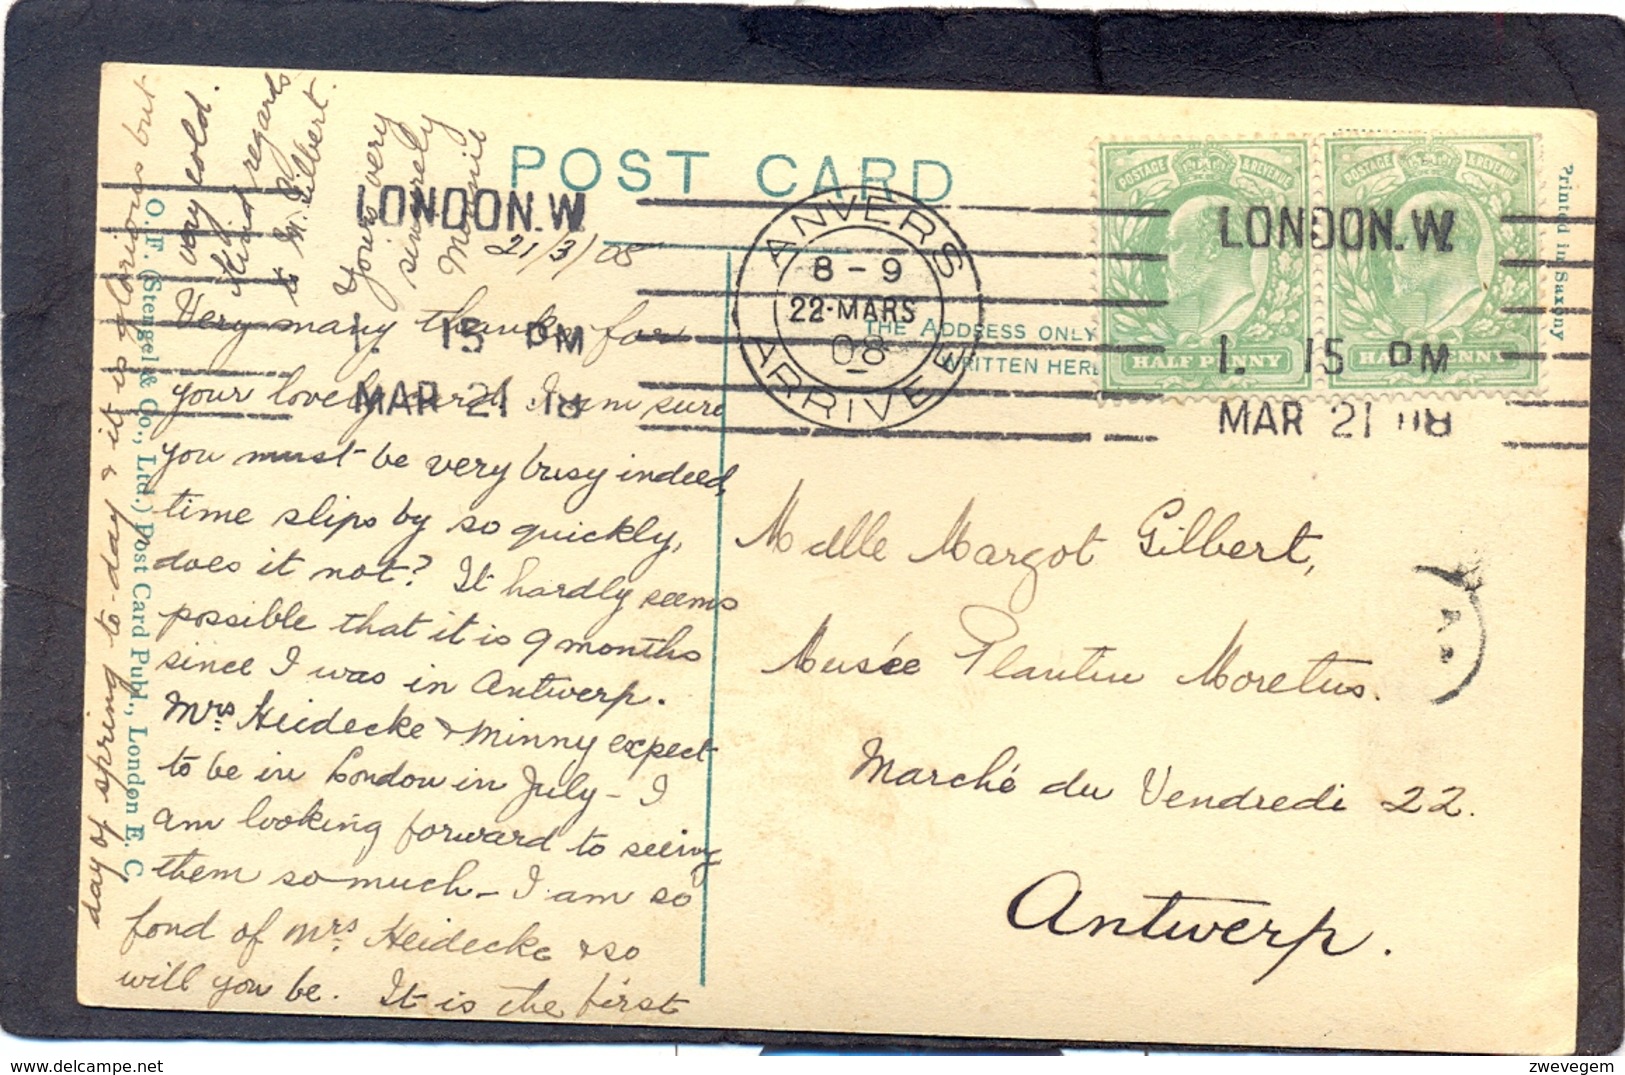 POST CARD
21/3/08
Very many thanks for
your lovely card. I am sure
you must be very busy indeed,
time slips by so quickly,
does it not? It hardly seems
possible that it is 9 months
since I was in Antwerp.
Mrs. Heidecke & Minny expect
to be in London in July - I
am looking forward to seeing
them so much - I am so
fond of Mrs. Heidecke & so
will you be. It is the first
day of spring to-day & it is glorious but
very cold.
Kind regards
to M. Gilbert.
Yours very
sincerely
LONDON.W.
1. 15 PM
MAR 21 08
ANVERS
8-9
22-MARS
08
ARRIVEE
THE ADDRESS ONLY
WRITTEN HERE
POSTAGE & REVENUE
HALF PENNY
POSTAGE & REVENUE
HALF PENNY
LONDON.W.
1. 15 PM
MAR 21 08
Printed in Saxony
Mdlle Margot Gilbert,
Musée Plantin Moretus.
Marché du Vendredi 22.
Antwerp.
O. F. (Stengel & Co., Ltd.) Post Card Publ., London E. C.
zwevegem